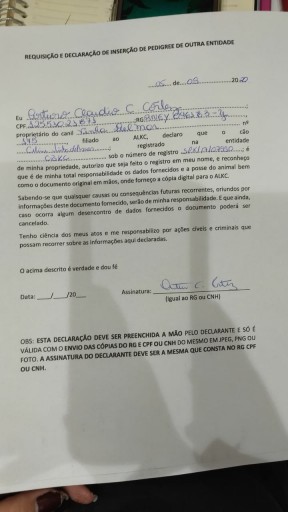 REQUISIÇÃO E DECLARAÇÃO DE INSERÇÃO DE PEDIGREE DE OUTRA ENTIDADE
05 de 08 2020
Eu Arthur Claudio C. Cortez
CPF RG
proprietário do canil nº
filiado ao ALKC, declaro que o cão
registrado na entidade
CBKC sob o número de registro é
de minha propriedade, autorizo que seja feito o registro em meu nome, e reconheço
que é de minha total responsabilidade os dados fornecidos e a posse do animal bem
como o documento original em mãos, onde forneço a cópia digital para o ALKC.
Sabendo-se que quaisquer causas ou consequências futuras recorrentes, oriundos por
informações deste documento fornecido, serão de minha responsabilidade. E que ainda,
caso ocorra algum desencontro de dados fornecidos o documento poderá ser
cancelado.
Tenho ciência dos meus atos e me responsabilizo por ações cíveis e criminais que
possam recorrer sobre as informações aqui declaradas.
O acima descrito é verdade e dou fé
Data: ___/___/20___ Assinatura:
(Igual ao RG ou CNH)
OBS: ESTA DECLARAÇÃO DEVE SER PREENCHIDA A MÃO PELO DECLARANTE E SÓ É
VÁLIDA COM O ENVIO DAS CÓPIAS DO RG E CPF OU CNH DO MESMO EM JPEG, PNG OU
FOTO. A ASSINATURA DO DECLARANTE DEVE SER A MESMA QUE CONSTA NO RG CPF
OU CNH.